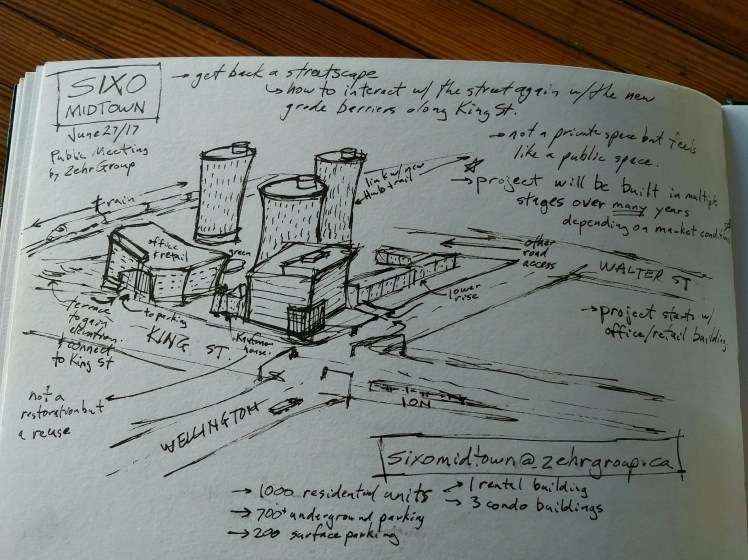 SIXO
MIDTOWN
June 27/17
Public Meeting
by Zehr Group
→ get back a streetscape
↳ how to interact w/ the street again w/ the new
grade barriers along King St.
→ not a private space but feels
like a public space.
→ project will be built in multiple
stages over many years
depending on market conditions
train
link w/ new
Hub + trail
office
+ retail
green
other
road
access
WALTER ST
lower
rise
→ project starts w/
office/retail building
terrace
to gain
elevation
+ connect
to King St
to parking
KING ST
Kaufman
house.
not a
restoration but
a reuse
WELLINGTON
ION
sixomidtown@zehrgroup.ca
→ 1000 residential units
→ 1 rental building
→ 3 condo buildings
→ 700+ underground parking
→ 200 surface parking